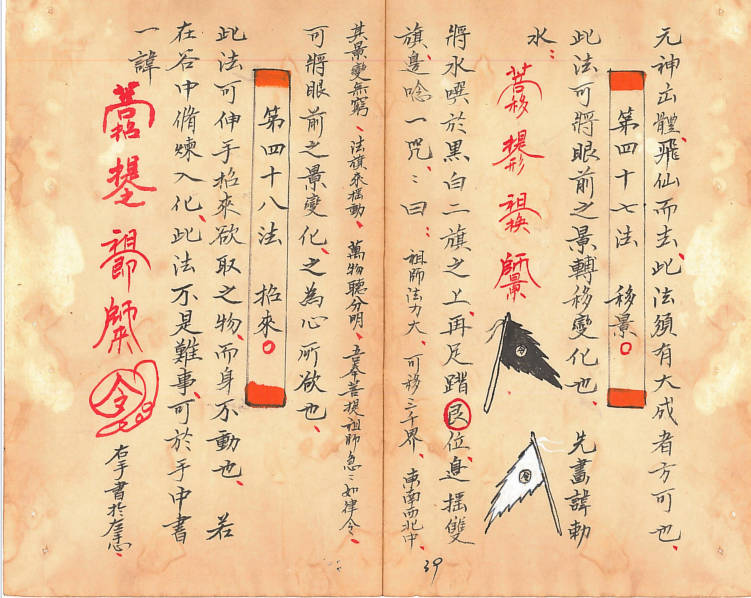 元神出體飛仙而去、此法須有大成者方可也、
第四十七法 移景
此法可將眼前之景轉移變化也、先畫諱勅
水：
將水噀於黑白二旗之上、再足踏艮位、邊搖雙
旗、邊唸一咒：曰：祖師法力大、可移三千界、東南西北中、
其景變無窮、法旗來搖動、萬物聽分明、吾奉菩提祖師急：如律令、
可將眼前之景變化、之為心所欲也、
第四十八法 招來
此法可伸手招來欲取之物、而身不動也、若
在谷中脩煉入化、此法不是難事、可於手中書
一諱
令
右手書於左手心、
39